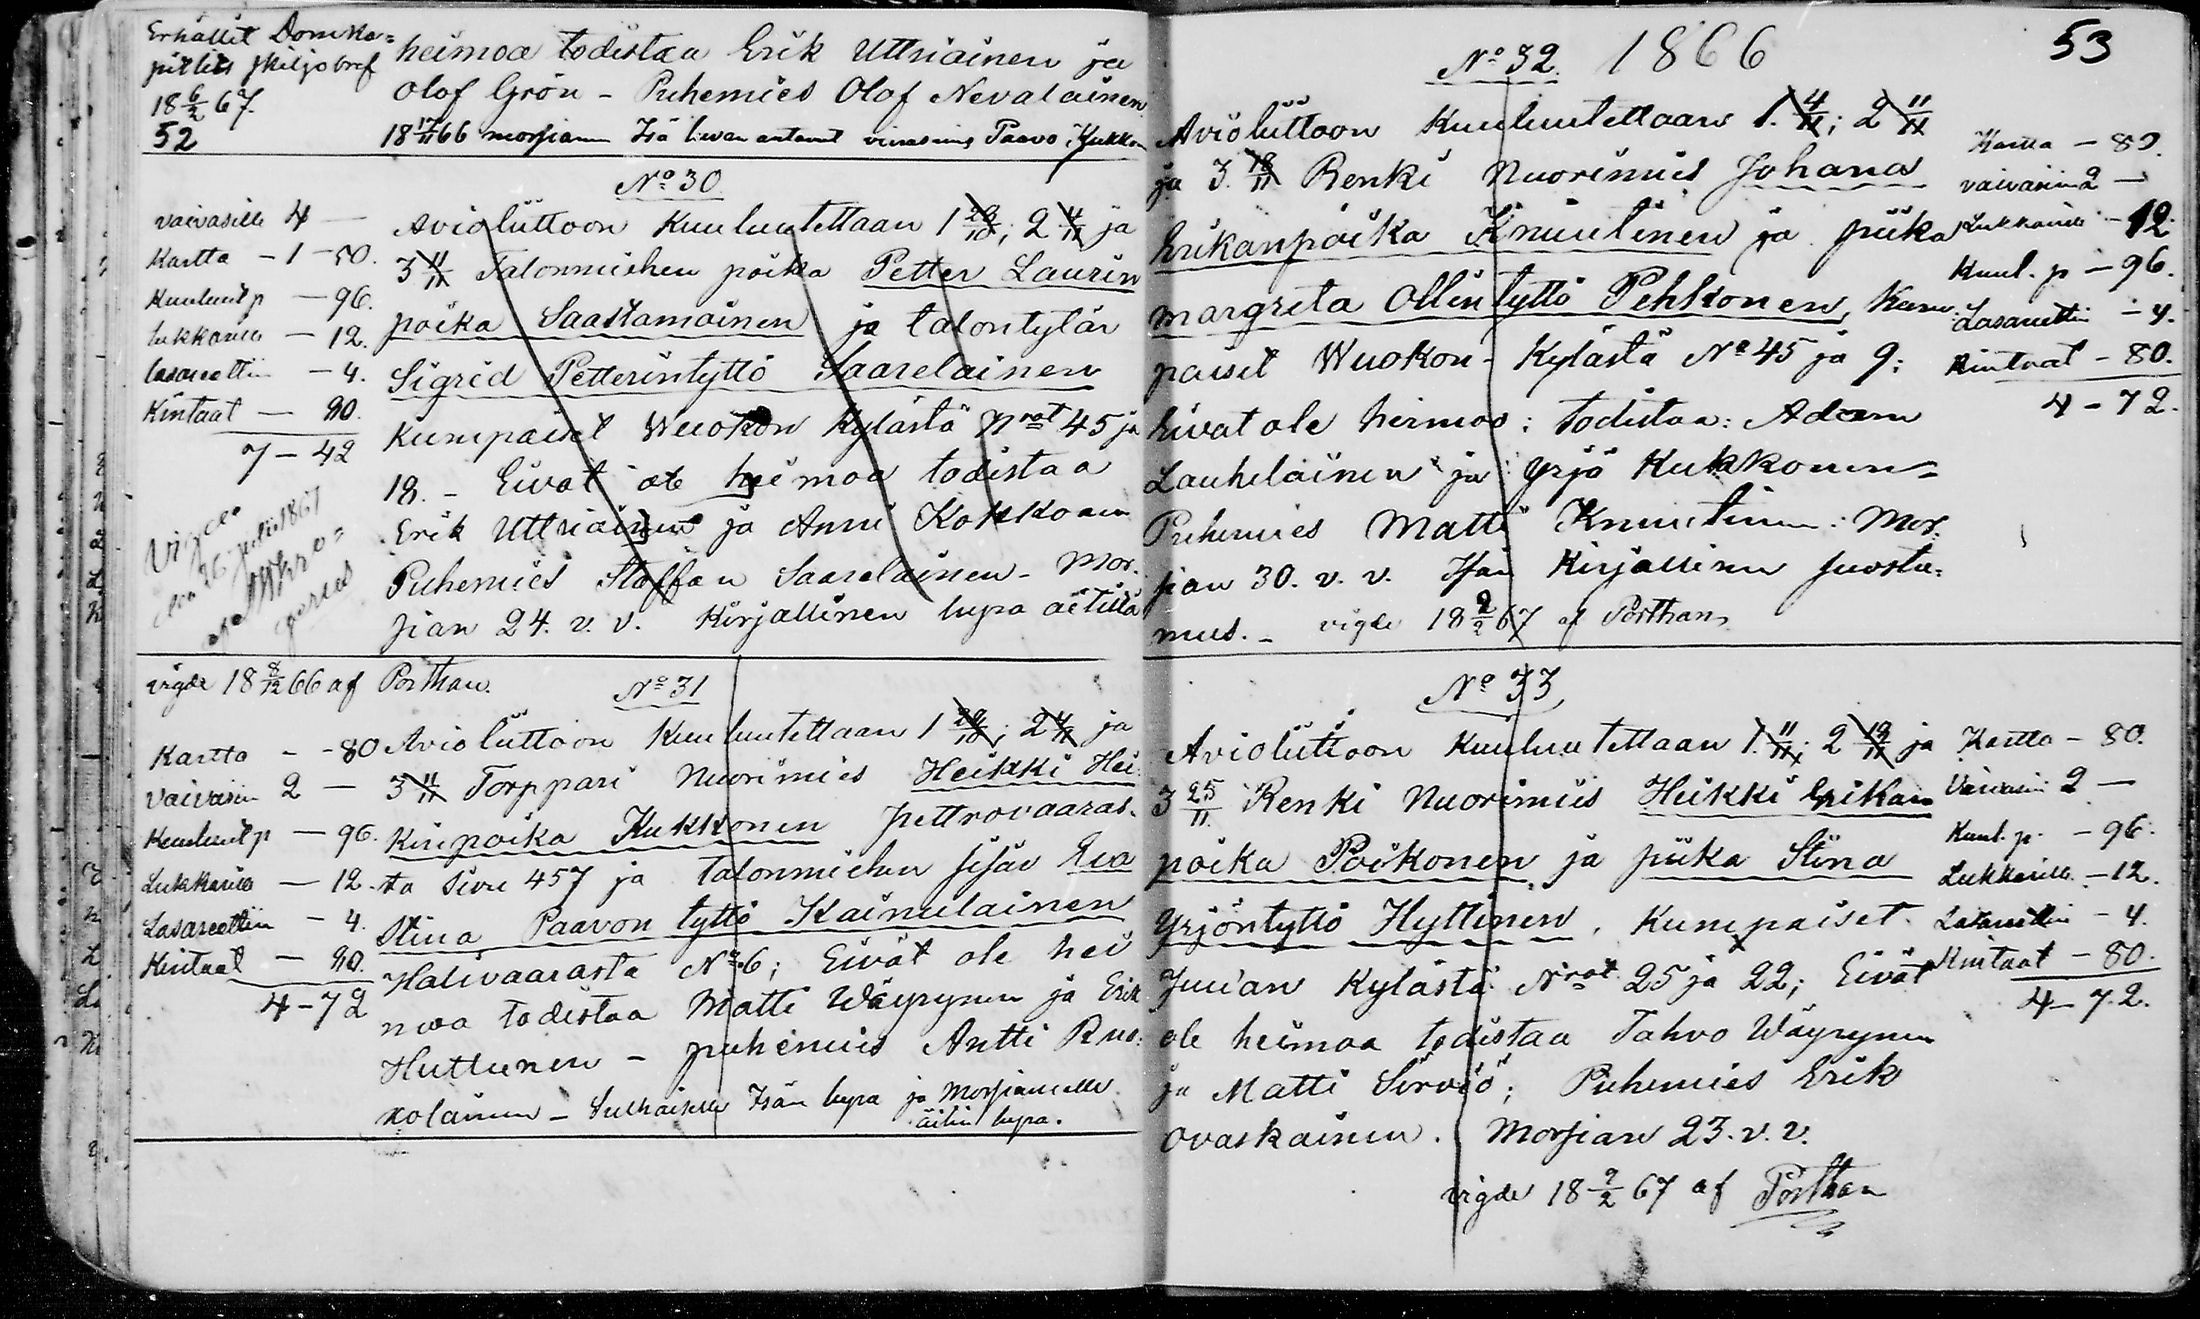 Erhållit Domka=
pitlets skiljobref
18 6/2 67.
52
heimoa todistaa Erik Uttriainen ja
Olof Grön - Puhemies Olof Nevalainen
18 17/11 66 morsiamen Isä luvan antanut Paavo Kukkonen
No 30
vaivasille 4 —
Kartta - 1 - 50.
Kuulut p - 96.
lukkarille - 12.
lasareettiin - 4.
Kintaat - 80.
7 - 42
Avioliittoon Kuuluutettaan 1 28/10; 2 4/11 ja
3 11/11 Talonmiehen poika Petter Laurin
poika Saastamoinen ja talontytär
Sigrid Petterintyttö Saarelainen
Kumpaiset Wuokon Kylästä Nrot 45 ja
18. - Eivät ole heimoa todistaa
Erik Uttriainen ja Anni Kokkonen
Puhemies Staffan Saarelainen - Mor-
sian 24. v. v. Kirjallinen lupa äitiltä
Vigde
den 26 julii 1867
vigde 18 8/12 66 af Porthan.
No 31
Kartta - - 80
Vaivasin 2 —
Kuulut p - 96.
Lukkarille - 12.
Lasareettiin - 4.
Kintaat - 80.
4 - 72
Avioliittoon Kuuluutettaan 1 28/10; 2 4/11 ja
3 11/11 Torppari Nuorimies Heikki Hei-
kinpoika Kukkonen Pettrovaaras-
ta Sivu 457 ja talonmiehen sisär Eva
Stina Paavon tyttö Kainulainen
Halivaarasta No 6; Eivät ole hei
moa todistaa Matti Wäyrynen ja Erik
Huttunen - puhemies Antti Ruo-
kolainen - Sulhaiselle Isän lupa ja Morsiamelle
äitin lupa.
53
No 32. 1866
Avioliittoon Kuuluutettaan 1. 4/11; 2 11/11
ja 3. 18/11 Renki Nuorimies Johana
Erikanpoika Knuutinen ja piika
Margreta Ollintyttö Pehkonen, Kum-
paiset Wuokon- Kylästä No 45 ja 9:
Eivät ole heimoo: todistaa: Adam
Lauhelainen ja Yrjö Kukkonen=
Puhemies Matti Knuutinen: Mor-
sian 30. v. v. Isän Kirjallinen suostu-
mus. - vigde 18 9/2 67 af Porthan
Kartta - 80.
vaivasin 2 —
Lukkarille - 12.
Kuul. p - 96.
Lasarettiin - 4.
Kintaat - 80.
4 - 72.
No 33
Avioliittoon Kuuluutettaan 1. 11/11; 2 18/11 ja
3 25/11 Renki Nuorimies Heikki Erikan
poika Poikonen ja piika Stina
Yrjöntyttö Hyttinen. Kumpaiset
Juu'an Kylästä Nrot 25 ja 22; Eivät
ole heimoa todistaa Tahvo Wäyrynen
ja Matti Sirviö; Puhemies Erik
Ovaskainen. Morsian 23. v. v.
vigde 18 9/2 67 af Porthan
Kartta - 80.
Vaivasin 2 —
Kuul. p. - 96.
Lukkarille - 12.
Lasarettiin - 4.
Kintaat - 80.
4 - 72.